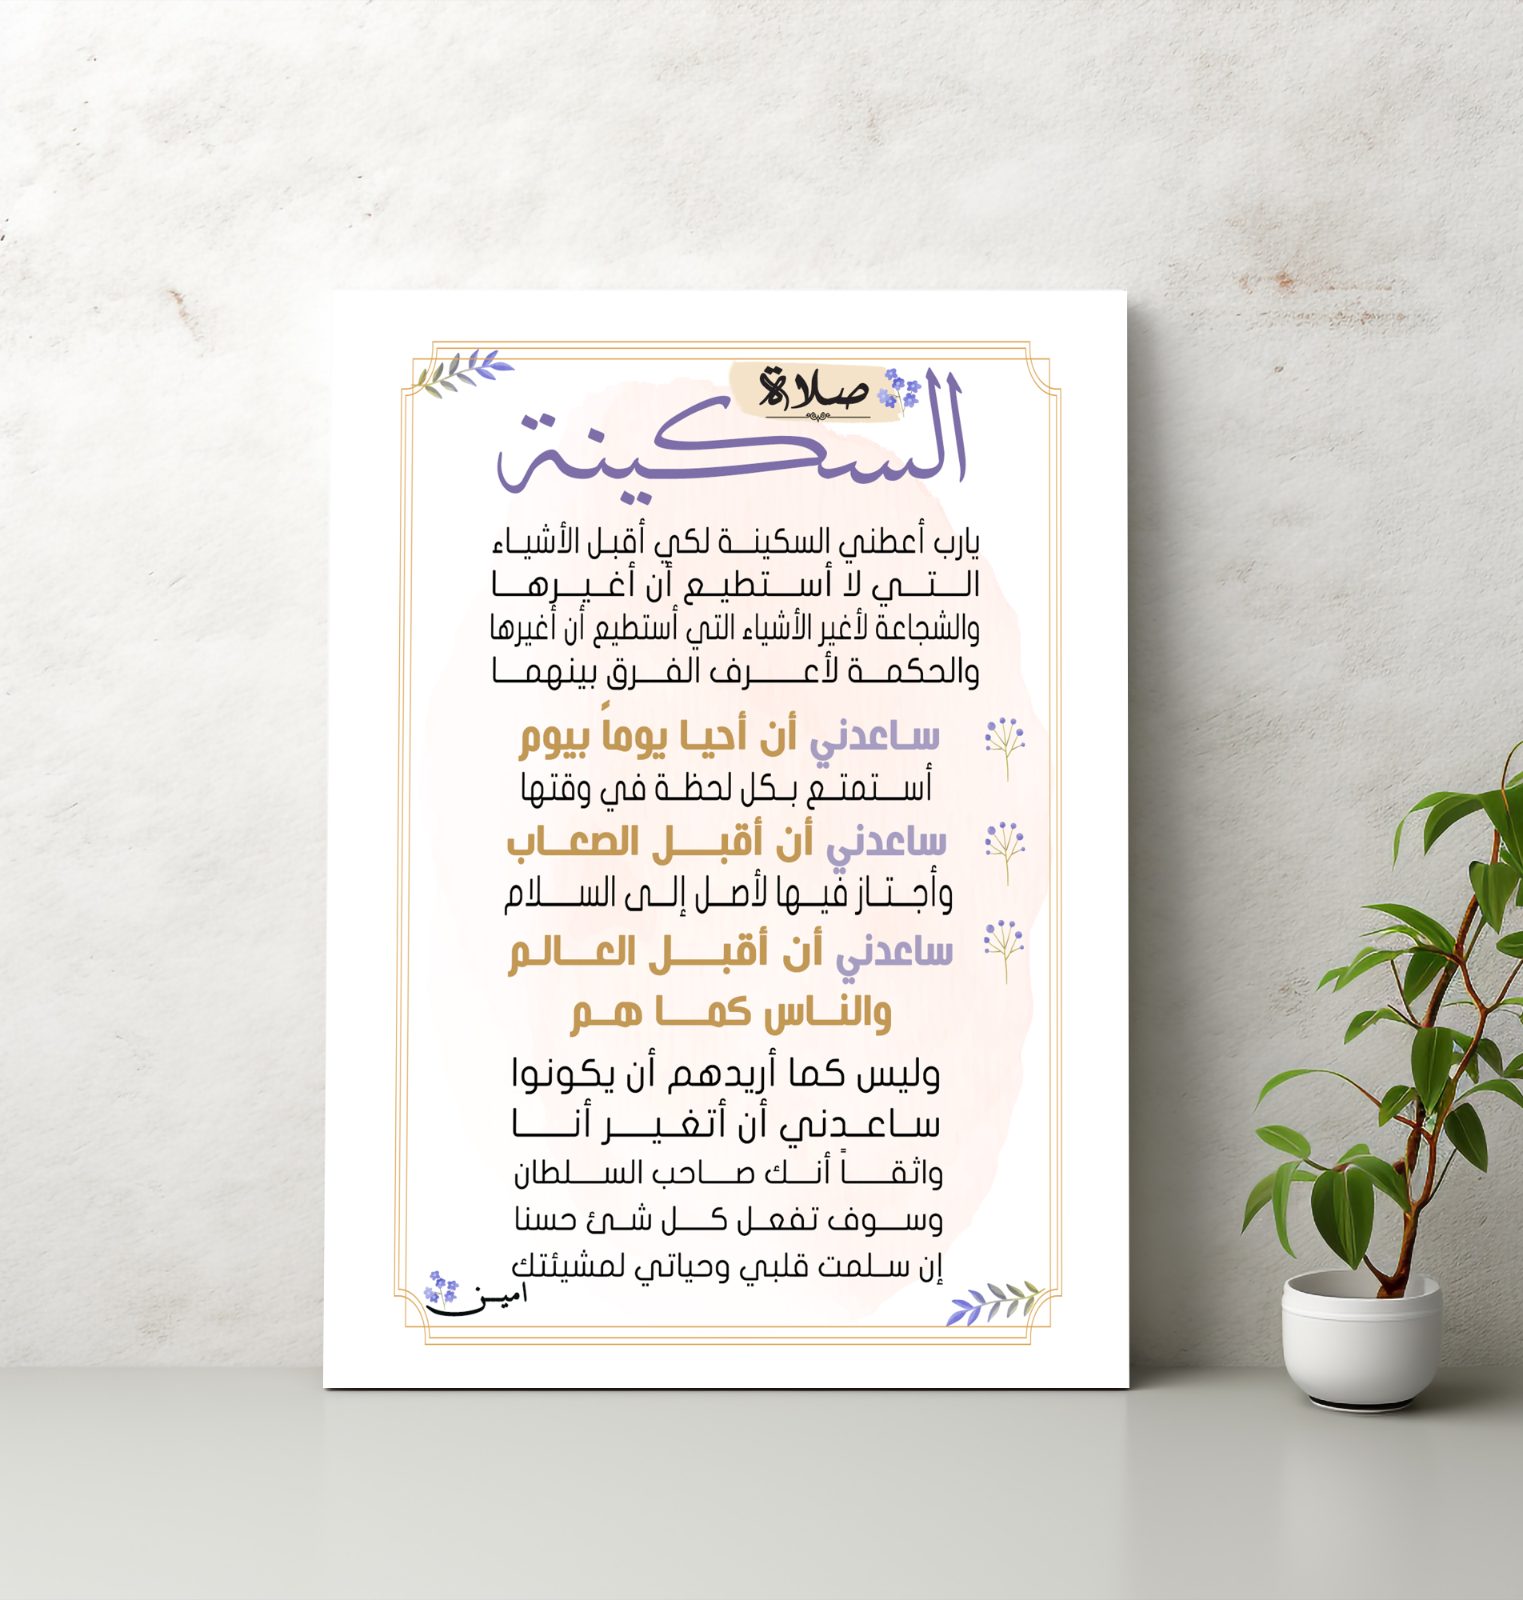 صلاة
السكينة
يارب أعطني السكينة لكي أقبل الأشياء
التي لا أستطيع أن أغيرها
والشجاعة لأغير الأشياء التي أستطيع أن أغيرها
والحكمة لأعرف الفرق بينهما
ساعدني أن أحيا يوماً بيوم
أستمتع بكل لحظة في وقتها
ساعدني أن أقبل الصعاب
وأجتاز فيها لأصل إلى السلام
ساعدني أن أقبل العالم
والناس كما هم
وليس كما أريدهم أن يكونوا
ساعدني أن أتغير أنا
واثقاً أنك صاحب السلطان
وسوف تفعل كل شئ حسنا
إن سلمت قلبي وحياتي لمشيئتك
امين